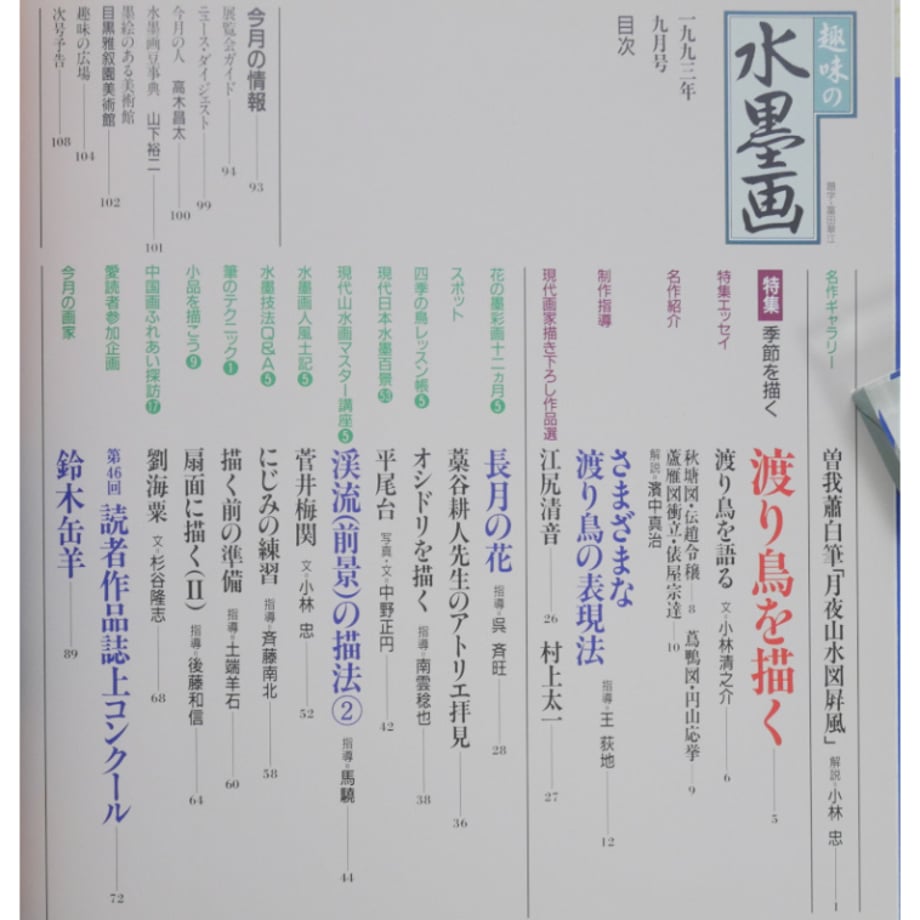 趣味の
水墨画
題字=富田華江
一九九三年
九月号
目次
名作ギャラリー
曽我蕭白筆「月夜山水図屛風」 解説=小林 忠 1
特集 季節を描く
渡り鳥を描く 5
特集エッセイ
渡り鳥を語る 文=小林清之介 6
名作紹介
秋塘図・伝趙令穣 8 蔦鴨図・円山応挙 9
蘆雁図衝立・俵屋宗達 10
解説=濱中真治
制作指導
さまざまな
渡り鳥の表現法 指導=王 荻地 12
現代画家描き下ろし作品選
江尻清音 26 村上太一 27
花の墨彩画十二ヵ月5
長月の花 指導=呉 斉旺 28
スポット
藁谷耕人先生のアトリエ拝見 36
四季の鳥レッスン帳5
オシドリを描く 指導=南雲稔也 38
現代日本水墨百景53
平尾台 写真・文=中野正円 42
現代山水画マスター講座5
渓流(前景)の描法② 指導=馬驍 44
水墨画人風土記5
菅井梅関 文=小林 忠 52
水墨技法Q&A5
にじみの練習 指導=斉藤南北 58
筆のテクニック1
描く前の準備 指導=土端羊石 60
小品を描こう9
扇面に描く(II) 指導=後藤和信 64
中国画ふれあい探訪17
劉海粟 文=杉谷隆志 68
愛読者参加企画
第46回 読者作品誌上コンクール 72
今月の画家
鈴木缶羊 89
今月の情報 93
展覧会ガイド 94
ニュース・ダイジェスト 99
今月の人 高木昌太 100
水墨画豆事典 山下裕二 101
墨絵のある美術館
目黒雅叙園美術館 102
趣味の広場 104
次号予告 108